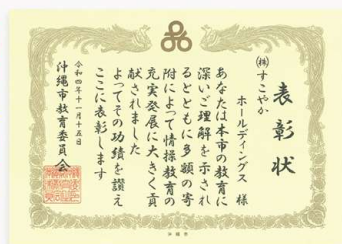 表彰状
㈱すこやか
ホールディングス 様
あなたは本市の教育に
深いご理解を示され
るとともに多額の寄
附によって情操教育の
充実発展に大きく貢
献されました
よってその功績を讃え
ここに表彰します
令和四年十一月十五日
沖縄市教育委員会